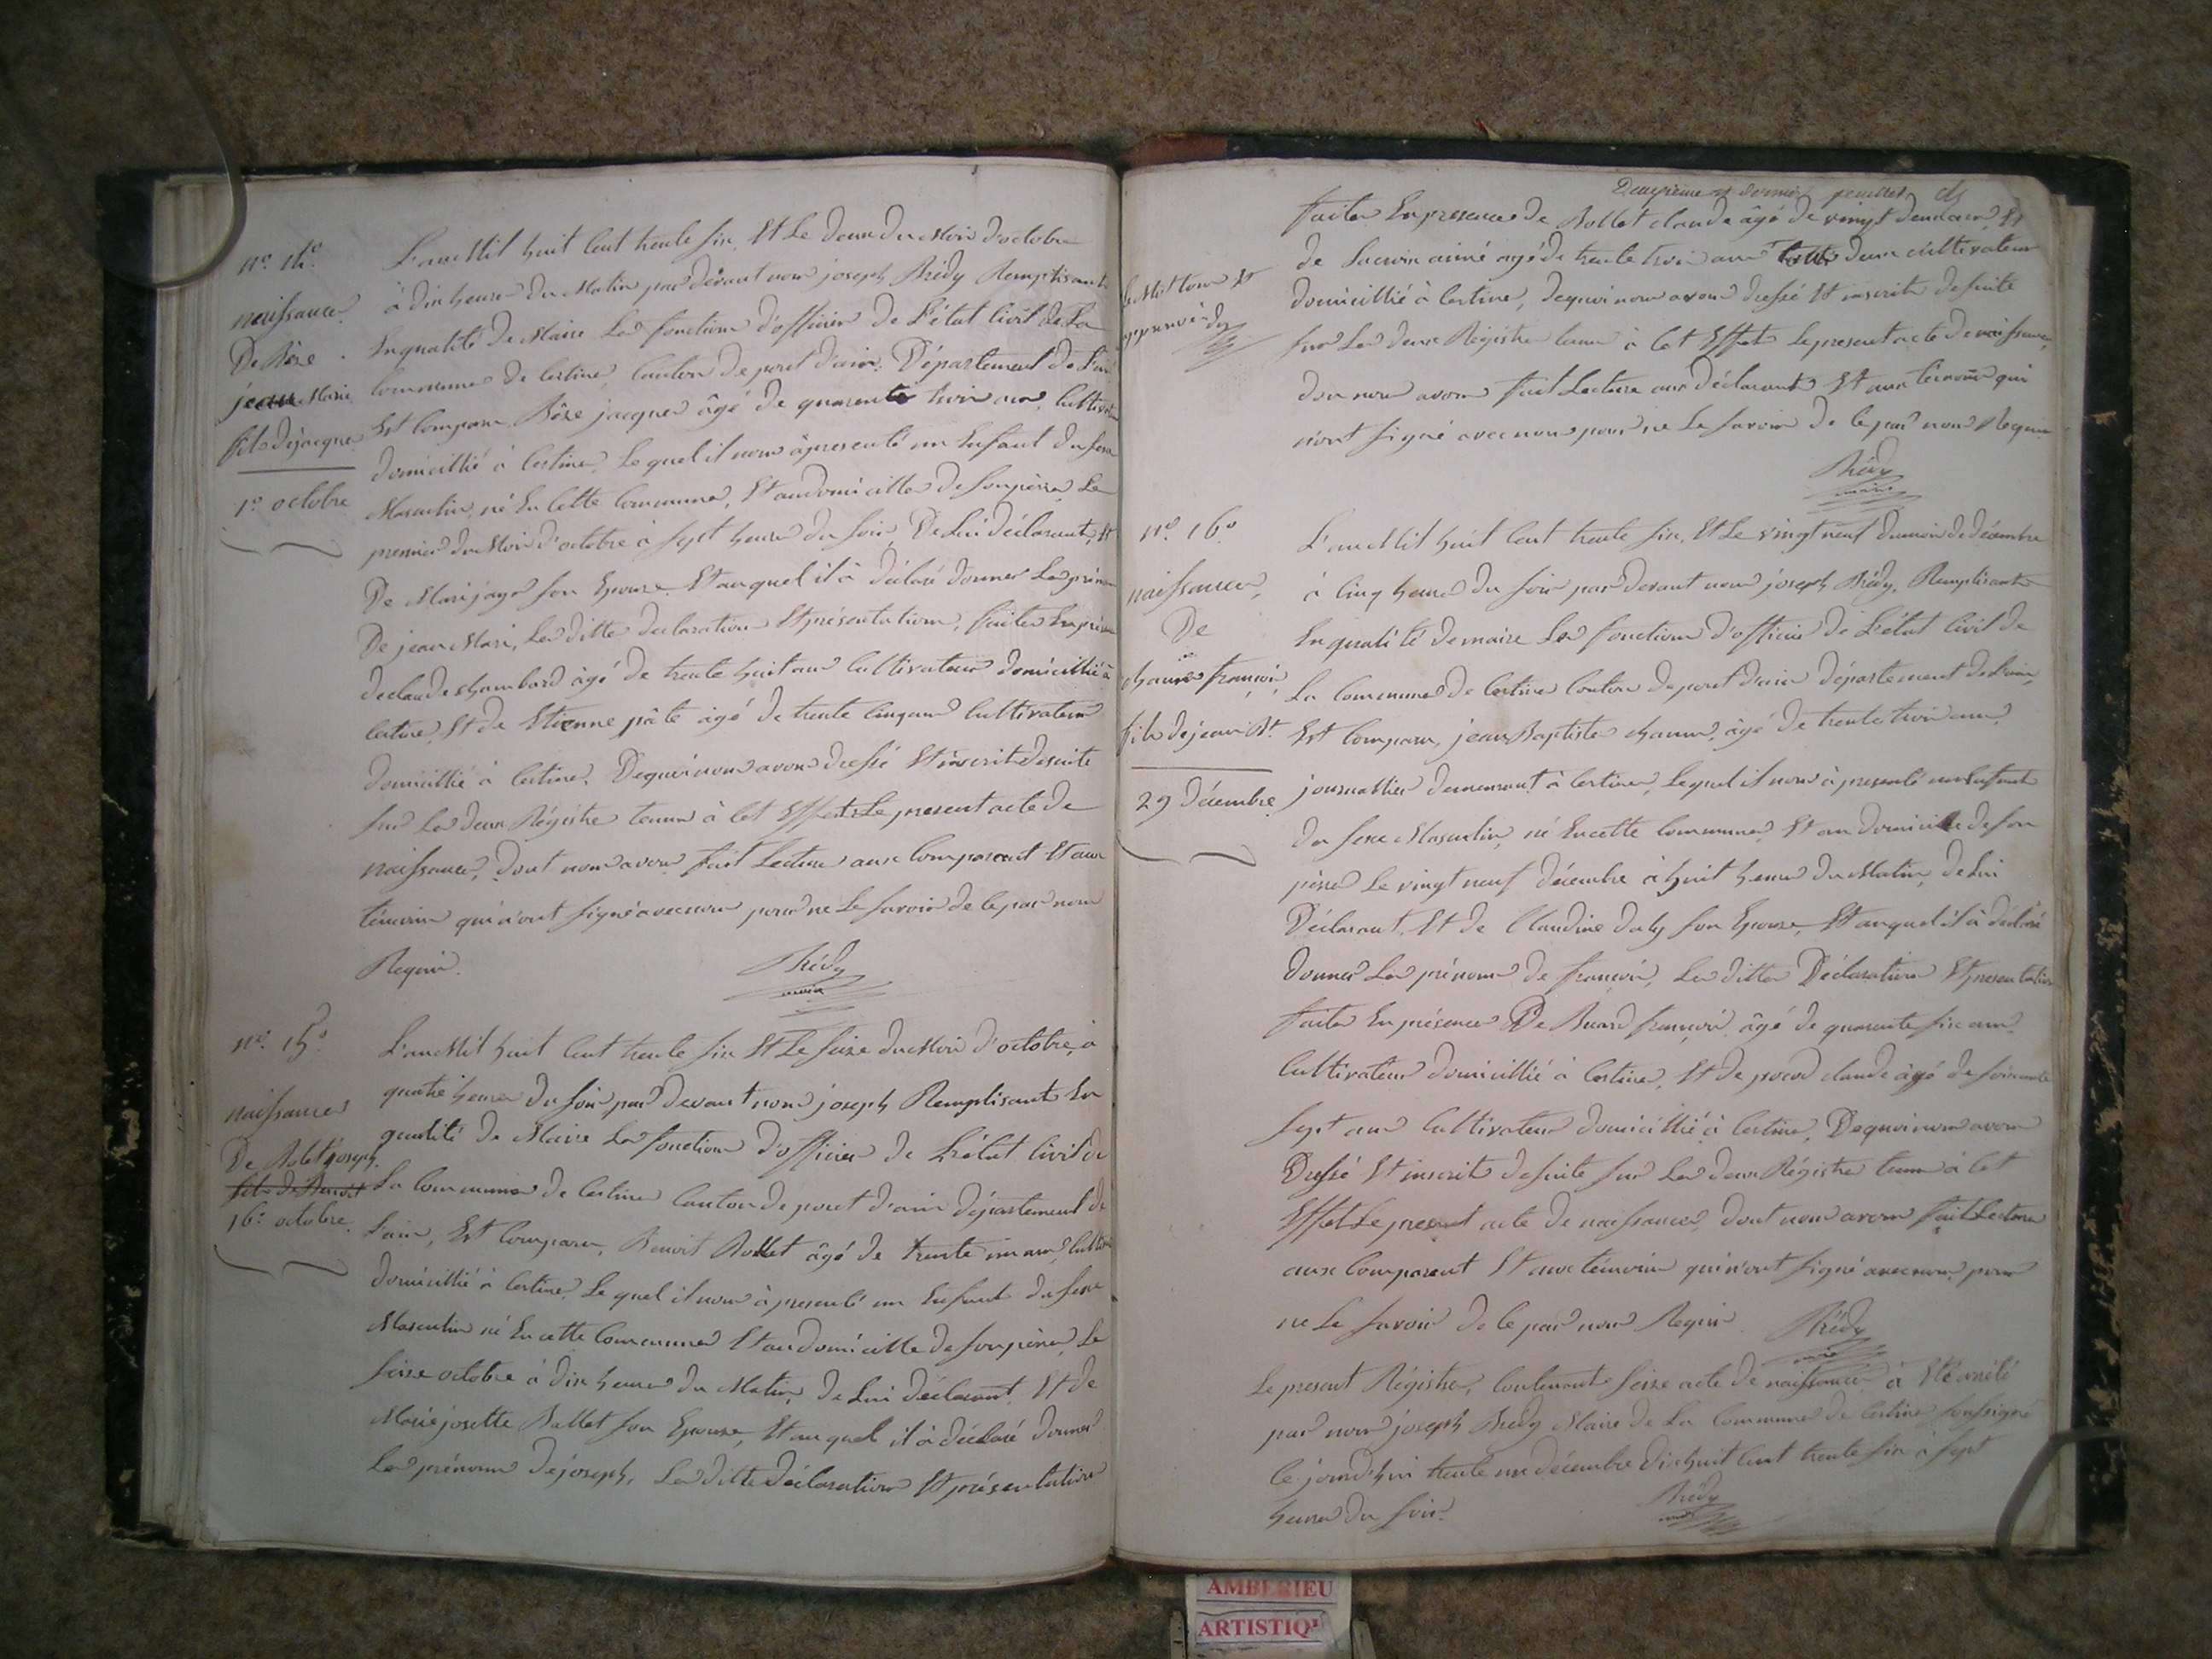 n.º 14.º
naissance
De Rôse
jean Marie
fils de jacque
1.er octobre
L'an Mil huit Cent trente six, Et Le deux du Mois d'octobre
à dix heures du Matin par devant nous joseph Brédy Remplisant
En qualité de Maire Les fonctions d'officier de L'état Civil de La
Commune de Certines, Canton de pont d'ain, Département de L'ain
Est Comparu Rôse jacques âgé de quarente trois ans, Cultivateur
domicillié à Certines, Lequel il nous à presenté un Enfant du sexe
Masculin, né En Cette Commune, Et au domicille de son père, Le
premier du Mois d'octobre à sept heures du soir, De Lui déclarant, Et
De Mari jayr son Epouse Et auquel il à déclaré donner Les prénoms
De jean Mari, Les dittes declaration Et présentations, faites En présence
de claude chambard âgé de trente huit ans Cultivateur domicillié à
Certines, Et de Etienne pâte âgé de trente Cinq ans Cultivateur
domicillié à Certines. De quoi nous avons dressé Et inscrit de suite
sur Les deux Régistre tenus à Cet Effets Le present acte de
naissance, dont nous avons fait Lecture aux Comparent Et aux
témoins qui n'ont signé avec nous pour ne Le savoir de Ce par nous
Requis.
Brédy
maire
n.º 15.º
naissances
De Rolet joseph
fils de Benoit
16.e octobre
L'an Mil huit Cent trente six Et Le seize du Mois d'octobre, à
quatre heures du soir par devant nous joseph Remplisant En
qualité de Maire Les fonctions d'officier de L'état Civil de
La Commune de Certines Canton de pont d'ain département de
L'ain, Est Comparu, Benoit Rollet âgé de trente un ans,
domicillié à Certines, Lequel il nous à presenté un Enfant du sexe
Masculin né En cette Commune Et au domicille de son père, Le
seize octobre à dix heures du Matin, de Lui déclarant, Et de
Marie josette Ballet son Epouse, Et auquel il à déclaré donner
Les prénoms de joseph, Les dittes déclaration Et présentation
Deuxième et dernier feuillet
faites En presence de Rollet claude âgé de vingt deux ans, Et
de aimé agé de trente trois ans tous deux cultivateur
domicillié à Certines, de quoi nous avons dressé Et inscrit de suite
sur Les deux Régistre tenus à Cet Effet Le present acte de naissance,
dont nous avons fait Lecture aux déclarant Et aux témoins qui
n'ont signé avec nous pour ne Le savoir de Ce par nous Requis
Le Mot tous Et
approuvé
Brédy
maire
n.º 16.º
naissances,
De
chanus françois,
fils de jean Bt.
29 Décembre
L'an Mil huit Cent trente six, Et Le vingt neuf du mois de décembre
à Cinq heures du soir par devant nous joseph Brédy, Remplisant
En qualité de maire Les fonctions d'officier de L'état Civil de
La Commune de Certines Canton de pont d'ain département de L'ain,
Est Comparu, jean Baptiste chanus, âgé de trente trois ans
journallier demeurant à Certines, Lequel il nous à presenté un Enfant
du sexe Masculin, né En cette Commune, Et au domicille de son
père Le vingt neuf décembre à huit heures du Matin, de Lui
Déclarant, Et de Claudine son Epouse, Et auquel il à déclaré
donner Les prénoms de françois, Les dittes Déclaration Et presentation
faites En présence De françois âgé de quarente six ans
Cultivateur domicillié à Certines, Et de claude âgé de soixante
sept ans Cultivateur domicillié à Certines, De quoi nous avons
Dressé Et inscrit de suite sur Les deux Régistre tenus à Cet
Effet Le present acte de naissances, dont nous avons fait Lecture
aux Comparent Et aux témoins qui n'ont signé avec nous pour
ne Le savoir de Ce par nous Requis Brédy
Le present Régistre, Contenant seize acte de naissance à Eté arrêté
par nous joseph Brédy Maire de La Commune de Certines soussigné
Ce jourd'hui trente un décembre dix huit Cent trente six à sept
heures du soir. Brédy
maire
AMBERIEU
ARTISTIQ